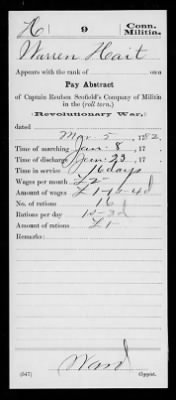 H 9 Conn. Militia.
Warren Hait
Appears with the rank of own
Pay Abstract
of Captain Reuben Scofield's Company of Militia
in the (roll torn.)
(Revolutionary War,)
dated
Mar 5 1782
Time of marching Jan. 8, 17 .
Time of discharge Jan. 23, 17 .
Time in service 16 days
Wages per month £2
Amount of wages
No. of rations 16
Rations per day
Amount of rations £1
Remarks:
Ward
(547) Copyist.